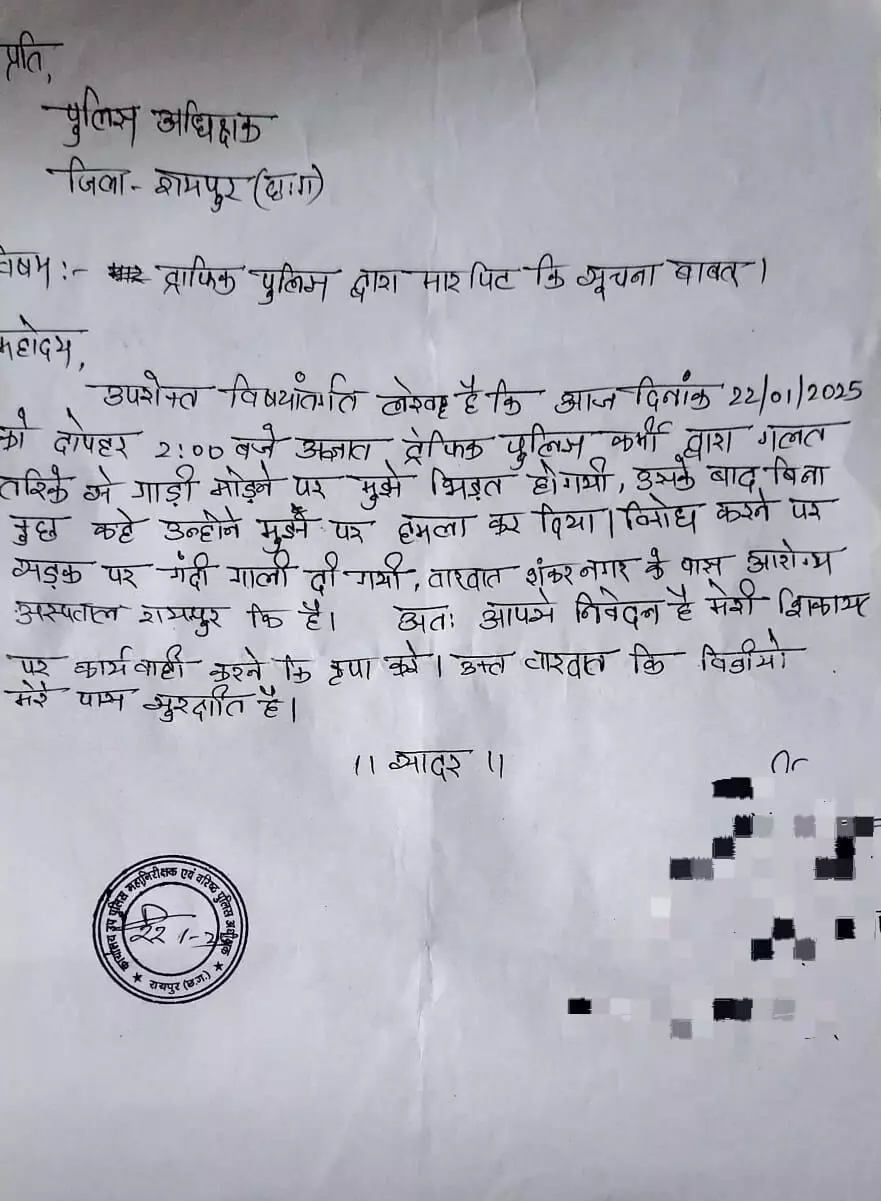 प्रति,
पुलिस अधिक्षक
जिला- रायपुर (छ:ग)
विषय :- ट्राफिक पुलिस द्वारा मारपिट कि सूचना बाबत।
महोदय,
उपरोक्त विषयांतर्गत लेख है कि आज दिनांक 22/01/2025
को दोपहर 2:00 बजे अज्ञात ट्रेफिक पुलिस कर्मी द्वारा गलत
तरिके से गाड़ी मोड़ने पर मुझे भिड़त होगयी, उसके बाद बिना
कुछ कहे उन्होंने मुझ पर हमला कर दिया। विरोध करने पर
सड़क पर गंदी गाली दी गयी, वारदात शंकर नगर के पास आरोग्य
अस्पताल रायपुर कि है। अतः आपसे निवेदन है मेरी शिकायत
पर कार्यवाही करने कि कृपा करे। उक्त वारदात कि विडीयो
मेरे पास सुरक्षित है।
।। सादर ।।
कार्यालय उप पुलिस महानिरीक्षक एवं वरिष्ठ पुलिस अधीक्षक
रायपुर (छ.ग.)